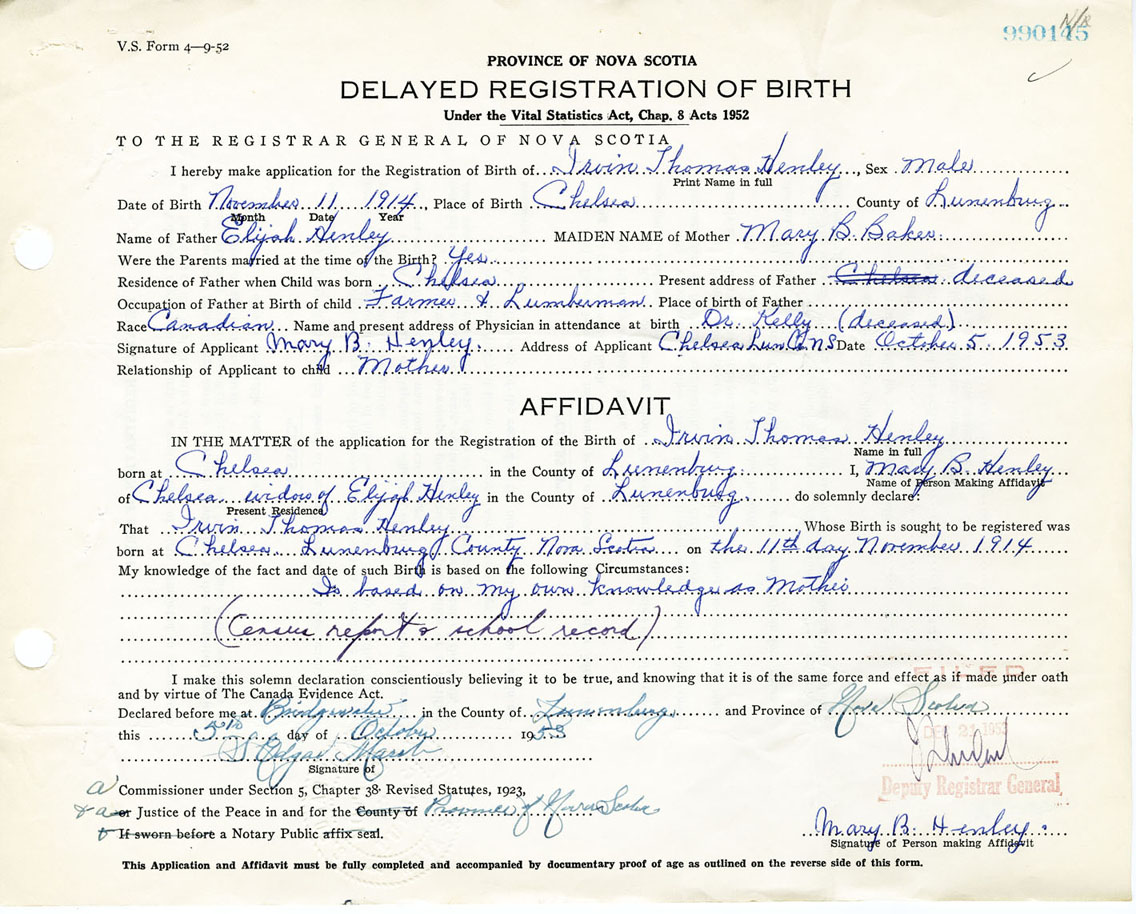 V.S. Form 4—9-52
N/R
990145
PROVINCE OF NOVA SCOTIA
DELAYED REGISTRATION OF BIRTH
Under the Vital Statistics Act, Chap. 8 Acts 1952
TO THE REGISTRAR GENERAL OF NOVA SCOTIA
I hereby make application for the Registration of Birth of Irvin Thomas Henley, Sex Male
Print Name in full
Date of Birth November 11 1914, Place of Birth Chelsea County of Lunenburg
Month Date Year
Name of Father Elijah Henley MAIDEN NAME of Mother Mary B. Baker
Were the Parents married at the time of the Birth? Yes
Residence of Father when Child was born Chelsea Present address of Father Chelsea deceased
Occupation of Father at Birth of child Farmer & Lumberman Place of birth of Father
Race Canadian Name and present address of Physician in attendance at birth Dr. Kelly (deceased)
Signature of Applicant Mary B. Henley Address of Applicant Chelsea Lun Co NS Date October 5 1953
Relationship of Applicant to child Mother
AFFIDAVIT
IN THE MATTER of the application for the Registration of the Birth of Irvin Thomas Henley
Name in full
born at Chelsea in the County of Lunenburg I, Mary B. Henley
Name of Person Making Affidavit
of Chelsea widow of Elijah Henley in the County of Lunenburg do solemnly declare:
Present Residence
That Irvin Thomas Henley, Whose Birth is sought to be registered was
born at Chelsea Lunenburg County Nova Scotia on the 11th day November 1914
My knowledge of the fact and date of such Birth is based on the following Circumstances:
Is based on my own knowledge as Mother
(Census report & school record)
I make this solemn declaration conscientiously believing it to be true, and knowing that it is of the same force and effect as if made under oath
and by virtue of The Canada Evidence Act.
FILED
Declared before me at Bridgewater in the County of Lunenburg and Province of Nova Scotia
this 5th day of October 1953
DEC 21 1953
S Edgar Marsh
Signature of
Deputy Registrar General
a Commissioner under Section 5, Chapter 38 Revised Statutes, 1923,
& a or Justice of the Peace in and for the County of Province of Nova Scotia
If sworn before a Notary Public affix seal.
Mary B. Henley
Signature of Person making Affidavit
This Application and Affidavit must be fully completed and accompanied by documentary proof of age as outlined on the reverse side of this form.